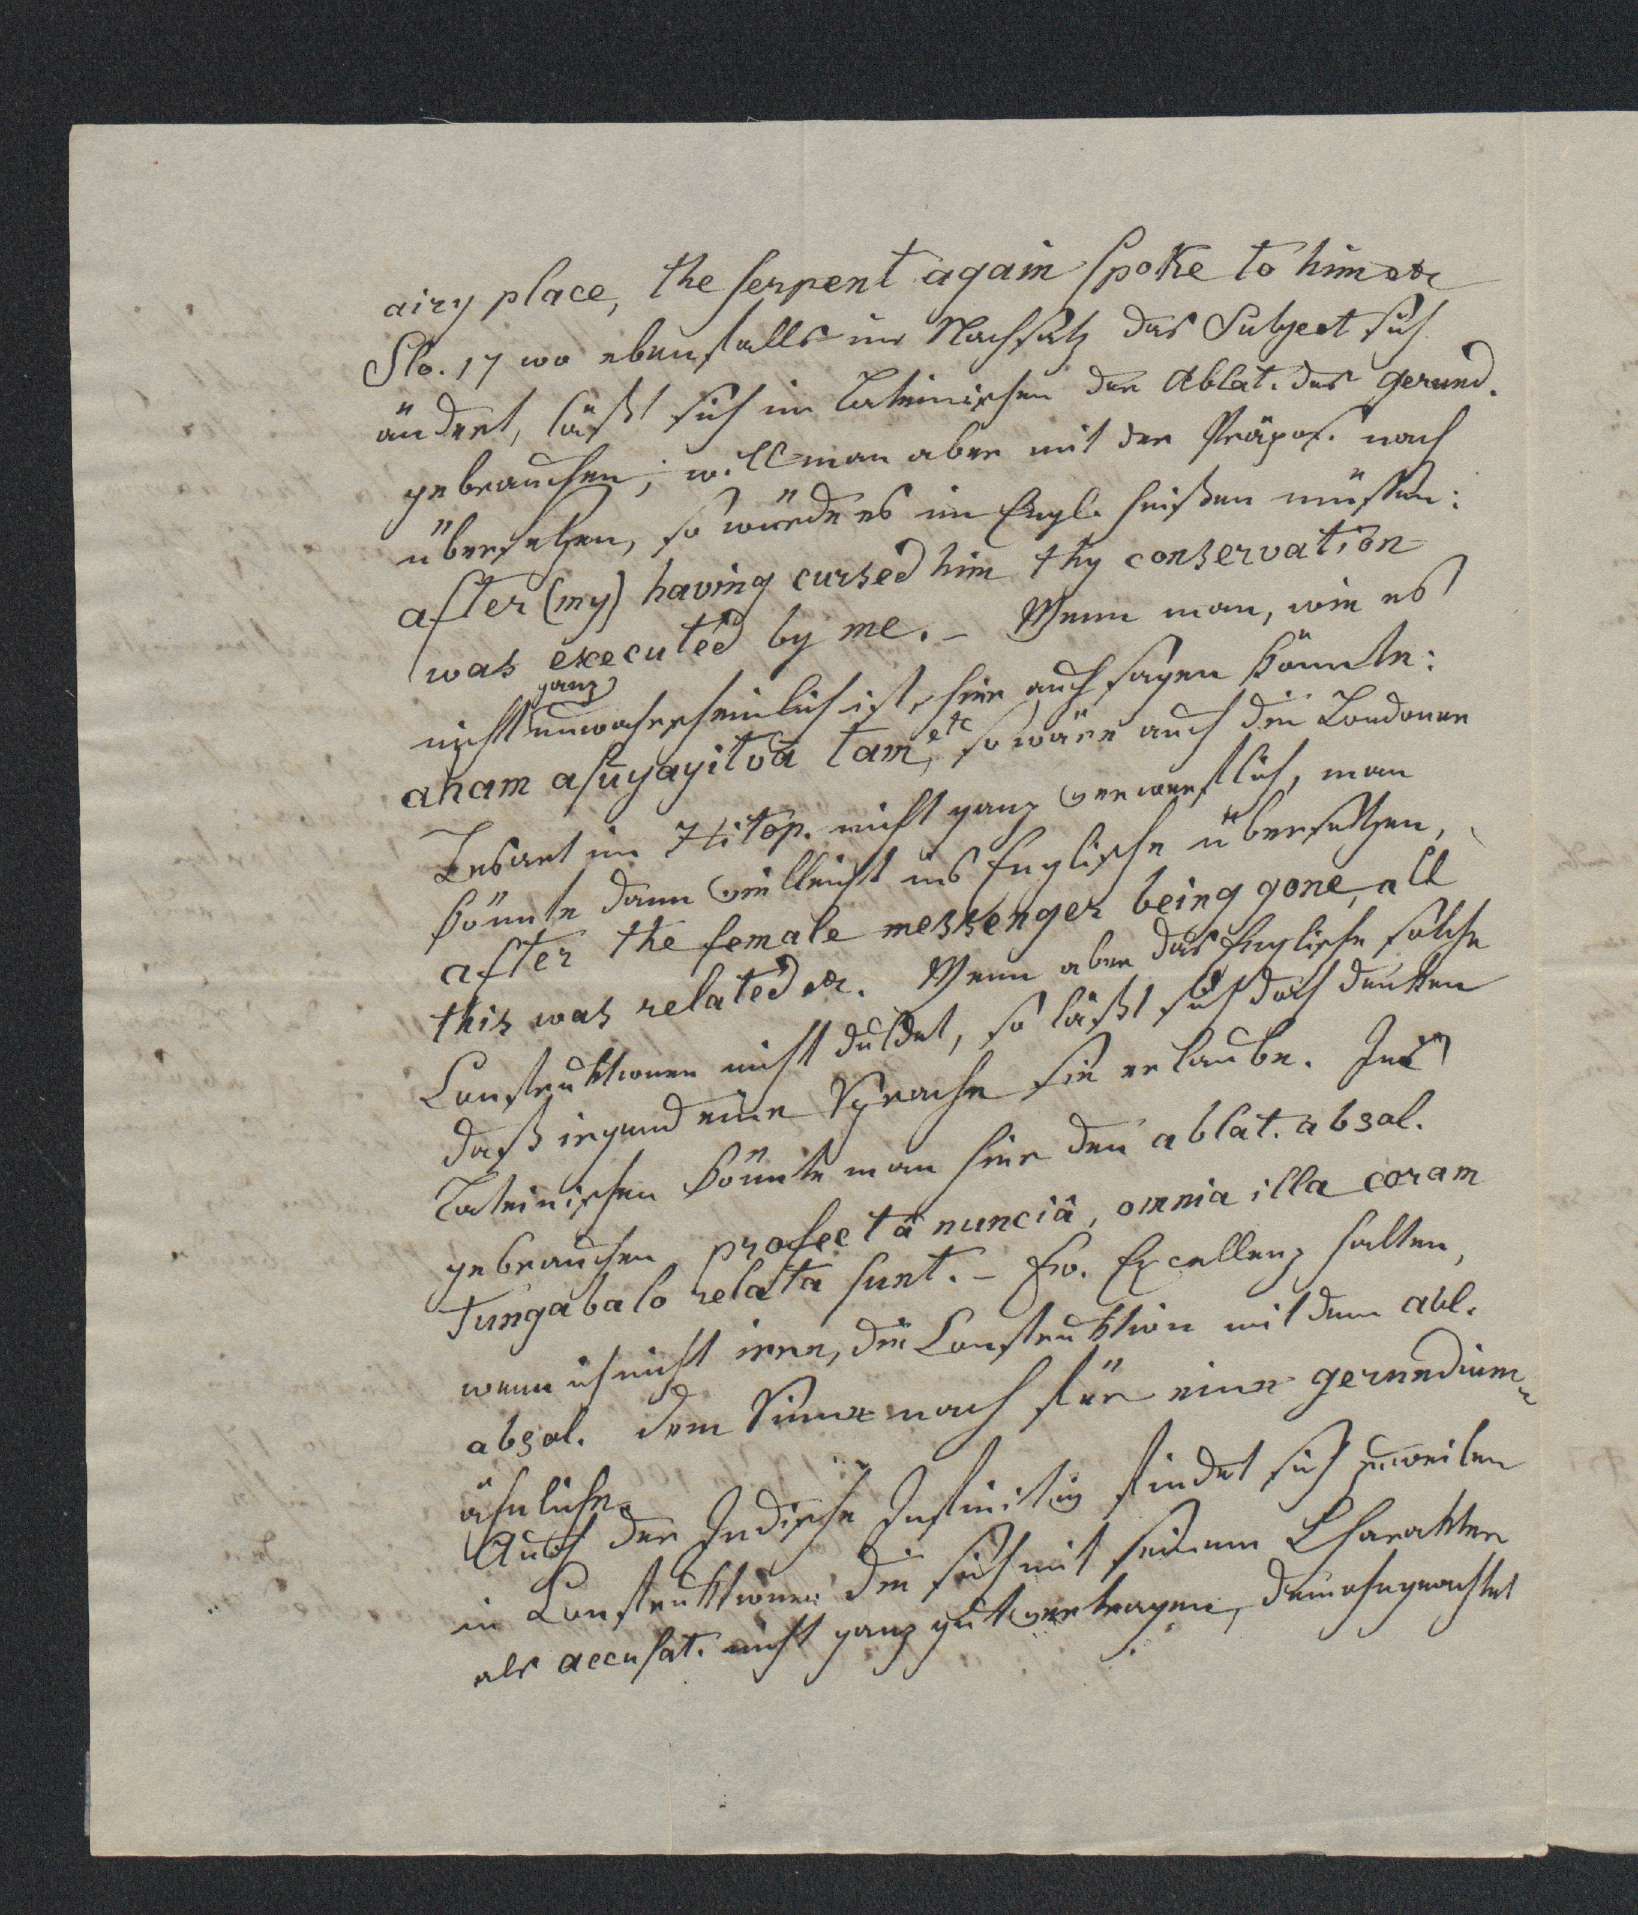 airy place, the serpent again spoke to him etc
Slo. 17 wo ebenfalls im Nachsatz das Subject sich
ändert, läßt sich im Lateinischen der Ablat. des gerund.
gebrauchen; will man aber mit der Präpos. nach
übersetzen, so würde es im Engl. heißen müssen:
after (my) having cursed him thy conservation
was executed by me. – Wenn man, wie es
nicht ganz unwahrscheinlich ist, hier auch sagen könnte:
aham asûyayitvâ tam etc, so wäre auch die Londoner
Lesart im Hitop. nicht ganz verwerflich, man
könnte dann vielleicht ins Englische übersetzen,
after the female messenger being gone, all
this was related etc. Wenn aber das Englische solche
Construktionen nicht duldet, so läßt sich doch denken
daß irgend eine Sprache sie erlaube. Im
Lateinischen könnte man hier den ablat. absol.
gebrauchen profectâ nunciâ, omnia illa coram
Tungabalo relata sunt. – Ew. Excellenz halten,
wenn ich nicht irre, die Construktion mit dem abl.
absol. dem Sinne nach für eine gerundium-
ähnliche.
Auch der Indische Infinitiv findet sich zuweilen
in Construktionen die sich mit seinem Charakter
als accusat. nicht ganz gut vertragen, demohngeachtet